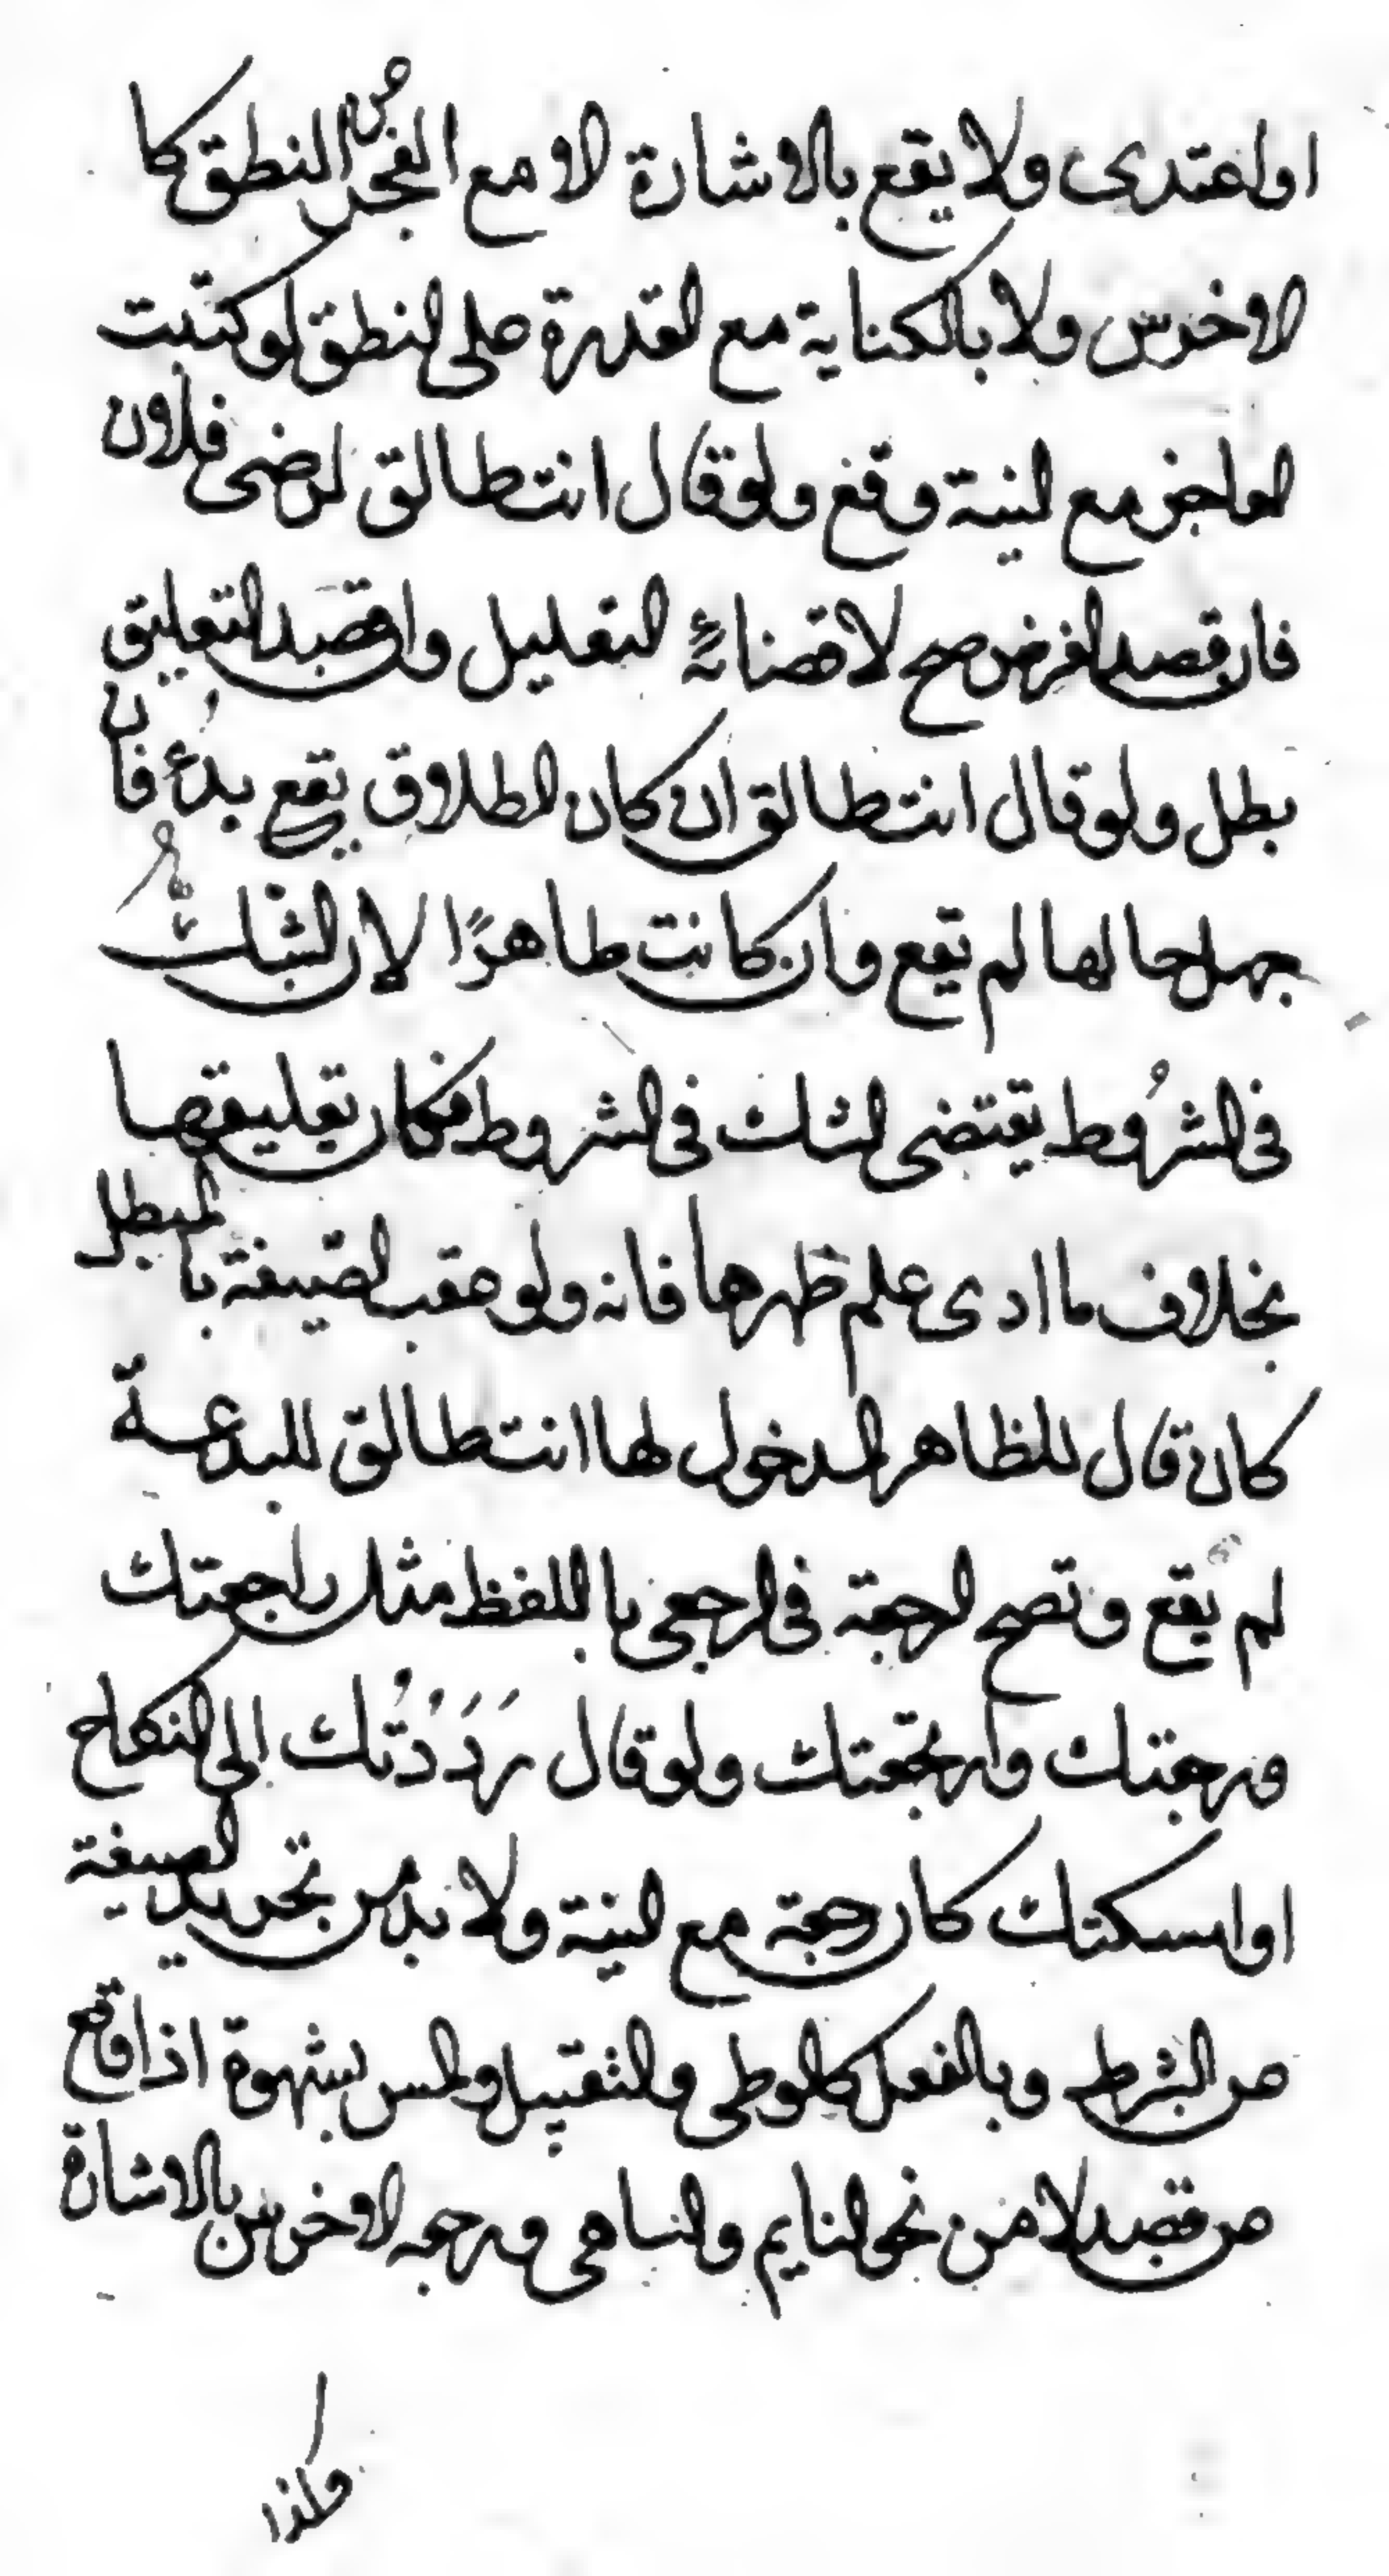 او اعتدى ولا يقع بالاشارة الا مع العجز عن النطق كا
الاخرس ولا بالكناية مع القدرة على النطق لو كتبت
العاجز مع النية وقع ولو قال انت طالق لرضى فلان
فان قصد الغرض صح لاقضائه التعليل وان قصد التعليق
بطل ولو قال انت طالق ان كان الطلاق يقع بدء فان
جهل حالها لم تقع وان كانت طاهرًا لان الشك
فى الشرُوط يقتضى الشك فى الشروط فكان تعليقها
بخلاف ما ادى علم ظهرها فانه ولو عقب الصيغة بالمبطل
كان قال للظاهر المدخول لها انت طالق للبدعة
لم يقع وتصح الرجعة فى الرجعى باللفظ مثل راجعتك
ورجعتك وارتجعتك ولو قال رَدَدْتُك الى النكاح
او امسكتك كان رجعة مع النية ولا بد من تجريد الصيغة
من الشرط وبالفعل كالوطى والتقبيل والمس بشهوة اذا وقع
من قصد لا من نحو النايم والساهى ورجعه الاخرس بالاشارة
وكذا